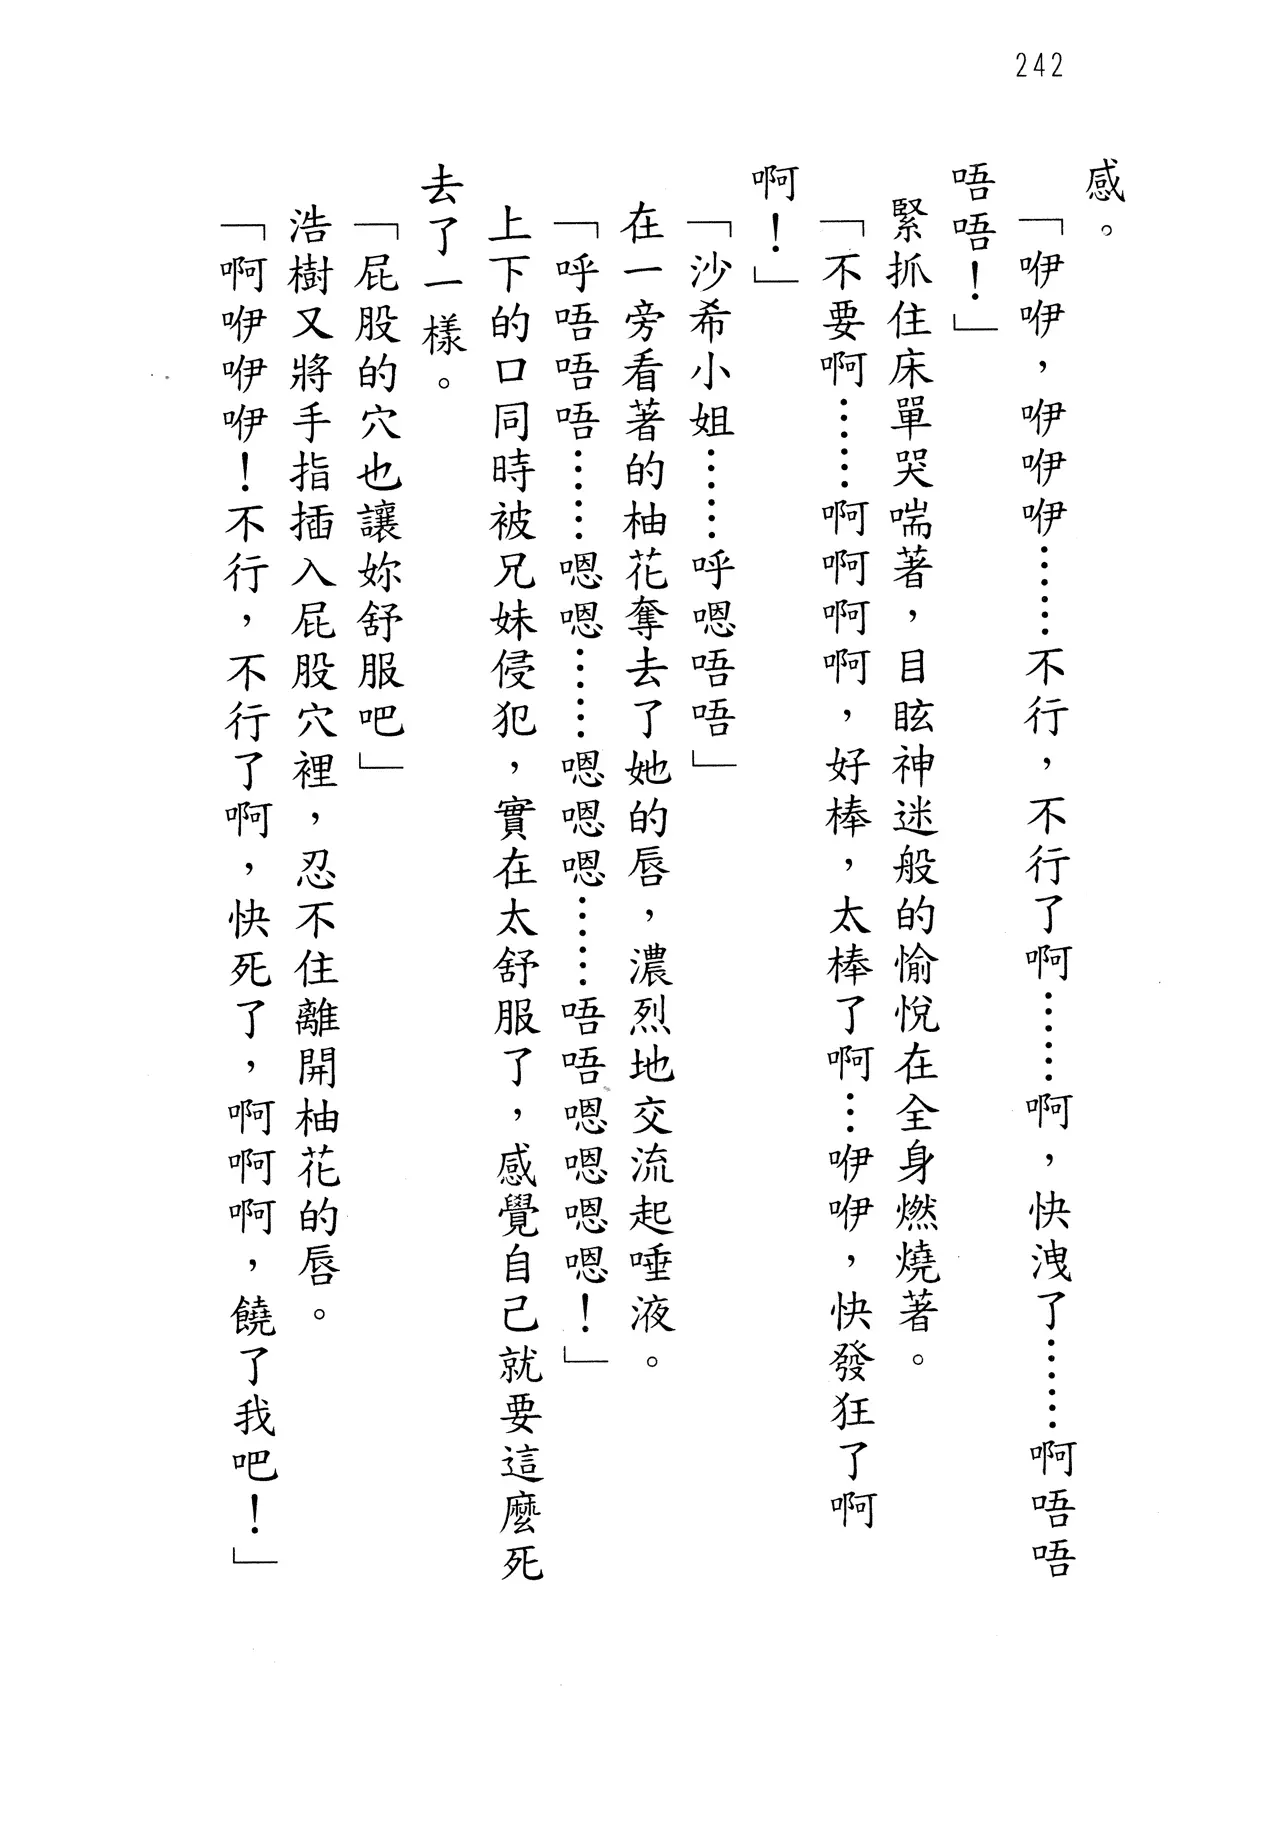 242
感。
「咿咿，咿咿咿……不行，不行了啊……啊，快洩了……啊唔唔
唔唔！」
緊抓住床單哭喘著，目眩神迷般的愉悅在全身燃燒著。
「不要啊……啊啊啊啊，好棒，太棒了啊…咿咿，快發狂了啊
啊！」
「沙希小姐……呼嗯唔唔」
在一旁看著的柚花奪去了她的唇，濃烈地交流起唾液。
「呼唔唔唔……嗯嗯……嗯嗯嗯……唔唔嗯嗯嗯嗯！」
上下的口同時被兄妹侵犯，實在太舒服了，感覺自己就要這麼死
去了一樣。
「屁股的穴也讓妳舒服吧」
浩樹又將手指插入屁股穴裡，忍不住離開柚花的唇。
「啊咿咿咿！不行，不行了啊，快死了，啊啊啊，饒了我吧！」